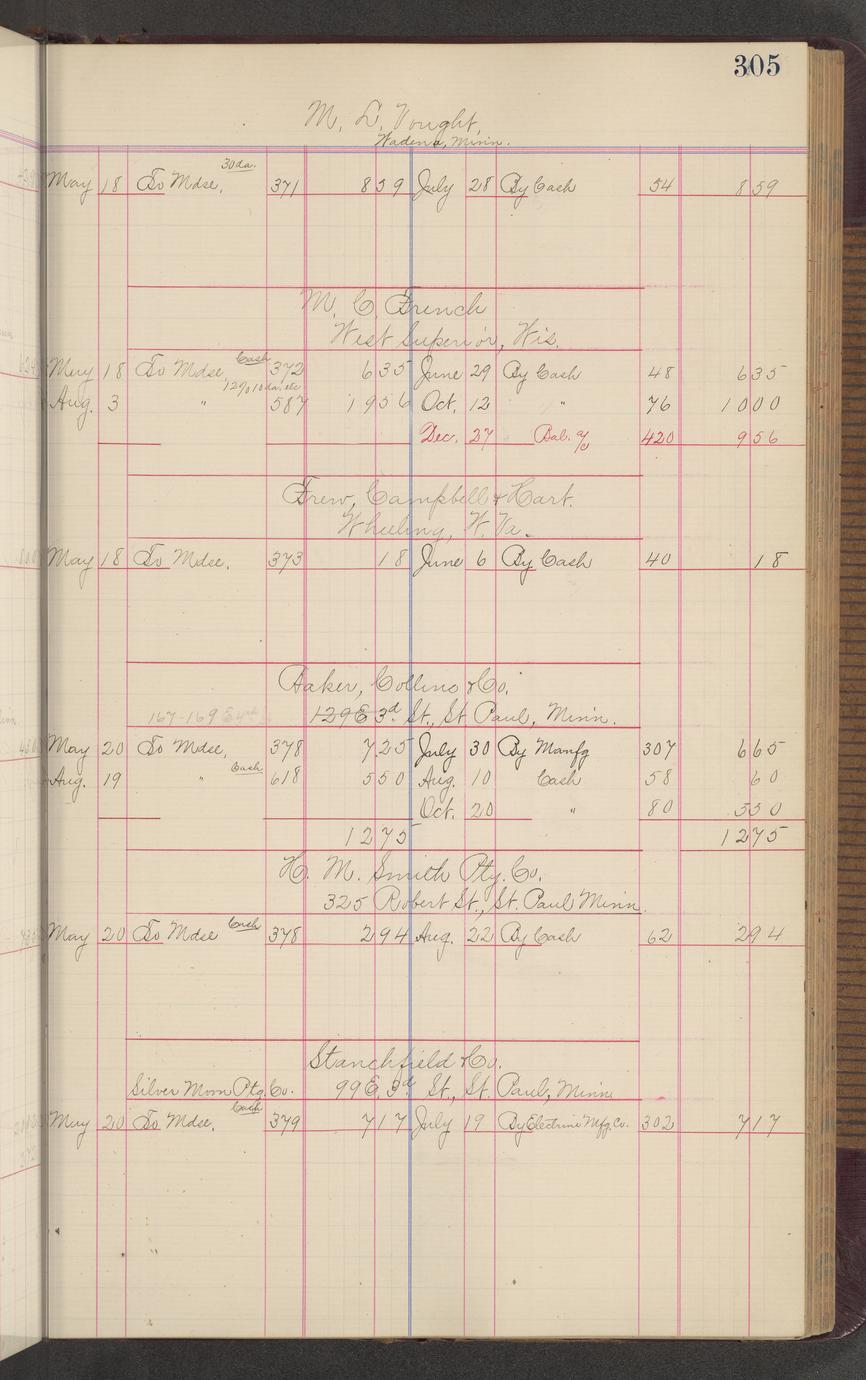 305
M. L. Vought,
Wadena, Minn.
30 da.
May 18 To Mdse, 371 859 July 28 By Cash 54 859
M. C. French
West Superior, Wis.
Cash
May 18 To Mdse, 372 635 June 29 By Cash 48 635
12% 10 da, etc
Aug. 3 " 587 1956 Oct, 12 " 76 1000
Dec. 27 Bal. a/c 420 956
Frew, Campbell & Hart.
Wheeling, W. Va.
May 18 To Mdse, 373 18 June 6 By Cash 40 18
Baker, Collins & Co.
167-169 E 4th 129 E 3d. St., St Paul, Minn.
May 20 To Mdse, 378 725 July 30 By Manfg 307 665
Cash
Aug. 19 " 618 550 Aug. 10 Cash 58 60
Oct. 20 " 80 550
1275 1275
H. M. Smith Ptg. Co.
325 Robert St., St. Paul Minn.
Cash
May 20 To Mdse 378 294 Aug. 22 By Cash 62 294
Stanchfield & Co.
Silver Moon Ptg. Co. 99 E. 3d St., St. Paul, Minn
Cash
May 20 To Mdse. 379 717 July 19 By Electrine Mfg. Co. 302 717